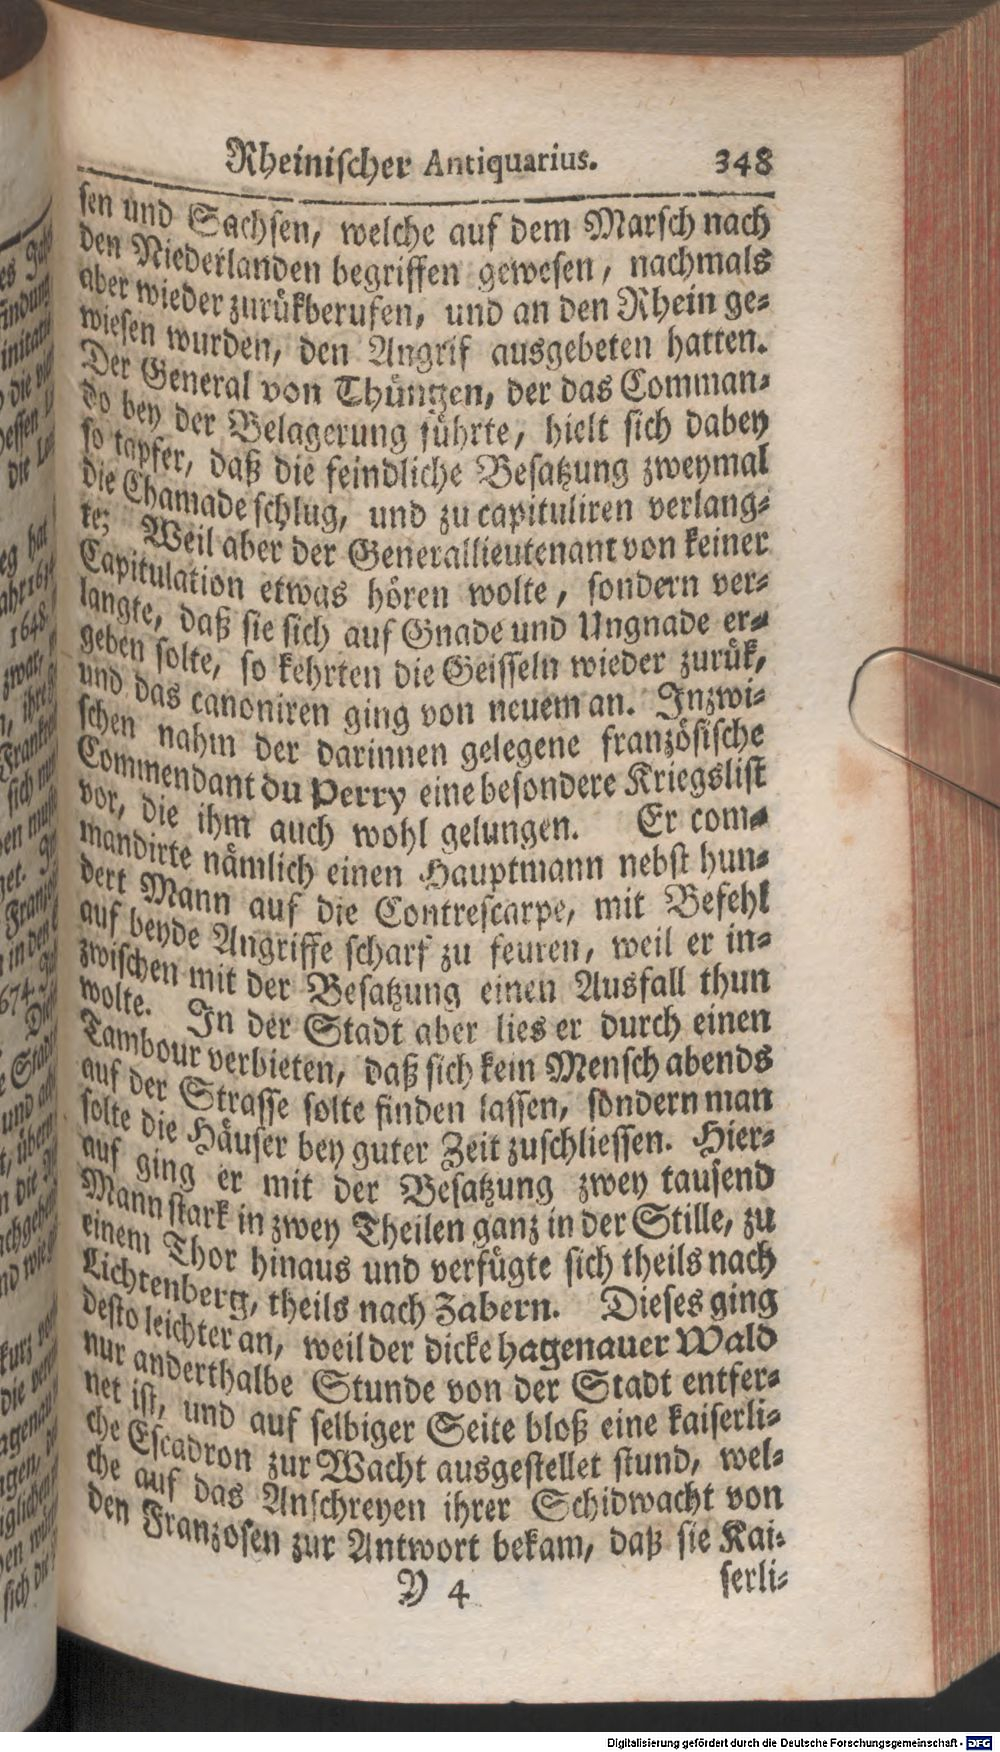 Rheinischer Antiquarius. 348
sen und Sachsen, welche auf dem Marsch nach
den Niederlanden begriffen gewesen, nachmals
aber wieder zurükberufen, und an den Rhein ge-
wiesen wurden, den Angrif ausgebeten hatten.
Der General von Thüngen, der das Comman-
do bey der Belagerung führte, hielt sich dabey
so tapfer, daß die feindliche Besatzung zweymal
die Chamade schlug, und zu capituliren verlang-
te; Weil aber der Generallieutenant von keiner
Capitulation etwas hören wolte, sondern ver-
langte, daß sie sich auf Gnade und Ungnade er-
geben solte, so kehrten die Geisseln wieder zurük,
und das canoniren ging von neuem an. Inzwi-
schen nahm der darinnen gelegene französische
Commendant du Perry eine besondere Kriegslist
vor, die ihm auch wohl gelungen. Er com-
mandirte nämlich einen Hauptmann nebst hun-
dert Mann auf die Contrescarpe, mit Befehl
auf beyde Angriffe scharf zu feuren, weil er in-
zwischen mit der Besatzung einen Ausfall thun
wolte. In der Stadt aber lies er durch einen
Tambour verbieten, daß sich kein Mensch abends
auf der Strasse solte finden lassen, sondern man
solte die Häuser bey guter Zeit zuschliessen. Hier-
auf ging er mit der Besatzung zwey tausend
Mann stark in zwey Theilen ganz in der Stille, zu
einem Thor hinaus und verfügte sich theils nach
Lichtenberg, theils nach Zabern. Dieses ging
desto leichter an, weil der dicke hagenauer Wald
nur anderthalbe Stunde von der Stadt entfer-
net ist, und auf selbiger Seite bloß eine kaiserli-
che Escadron zur Wacht ausgestellet stund, wel-
che auf das Anschreyen ihrer Schidwacht von
den Franzosen zur Antwort bekam, daß sie Kai-
Y 4 serli-
Digitalisierung gefördert durch die Deutsche Forschungsgemeinschaft - DFG